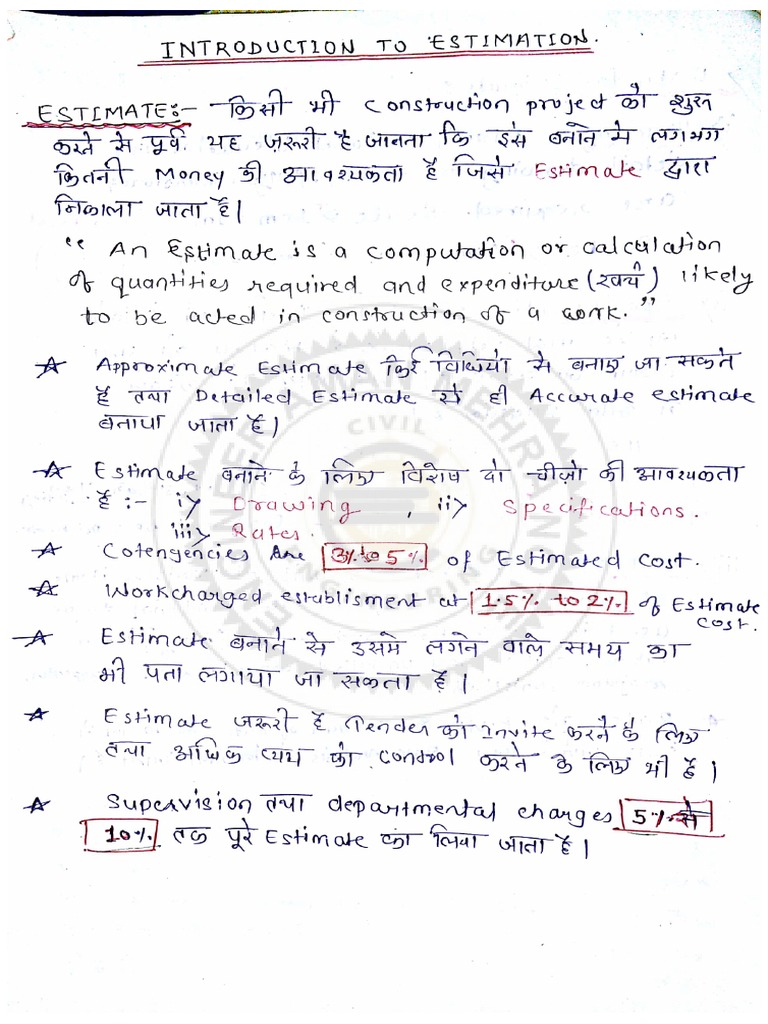 INTRODUCTION TO ESTIMATION.
ESTIMATE:- किसी भी construction project को शुरू
करने से पूर्व यह ज़रूरी है जानना कि इस बनाने मे लगभग
कितनी Money की आवश्यकता है जिसे Estimate द्वारा
निकाला जाता है।
“ An Estimate is a computation or calculation
of quantities required and expenditure (खर्च) likely
to be acted in construction of a work.”
★ Approximate Estimate कई विधियो से बनाए जा सकते
है तथा Detailed Estimate से ही Accurate estimate
बनाया जाता है।
★ Estimate बनाने के लिए विशेष दो चीजो की आवश्यकता
है :- i> Drawing , ii> Specifications.
iii> Rates.
★ Cotengencies Are 3% to 5% of Estimated cost.
★ Workcharged establisment at 1.5% to 2% of Estimate
cost.
★ Estimate बनाने से उसमे लगने वाले समय का
भी पता लगाया जा सकता है।
★ Estimate जरूरी है Tender को Invite करने के लिए
तथा अधिक व्यय को control करने के लिए भी है।
★ Supervision तथा departmental charges 5% से
10% तक पूरे Estimate का लिया जाता है।
ENGINEER AMAN MEHRAN
CIVIL
ENGINEERING